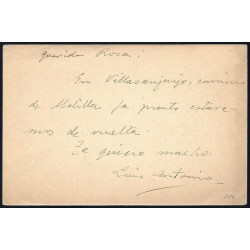 querida Rosa:
En Villasanjurjo, camino
de Melilla ya pronto estare-
mos de vuelta.
Te quiero mucho
Luis Antonio